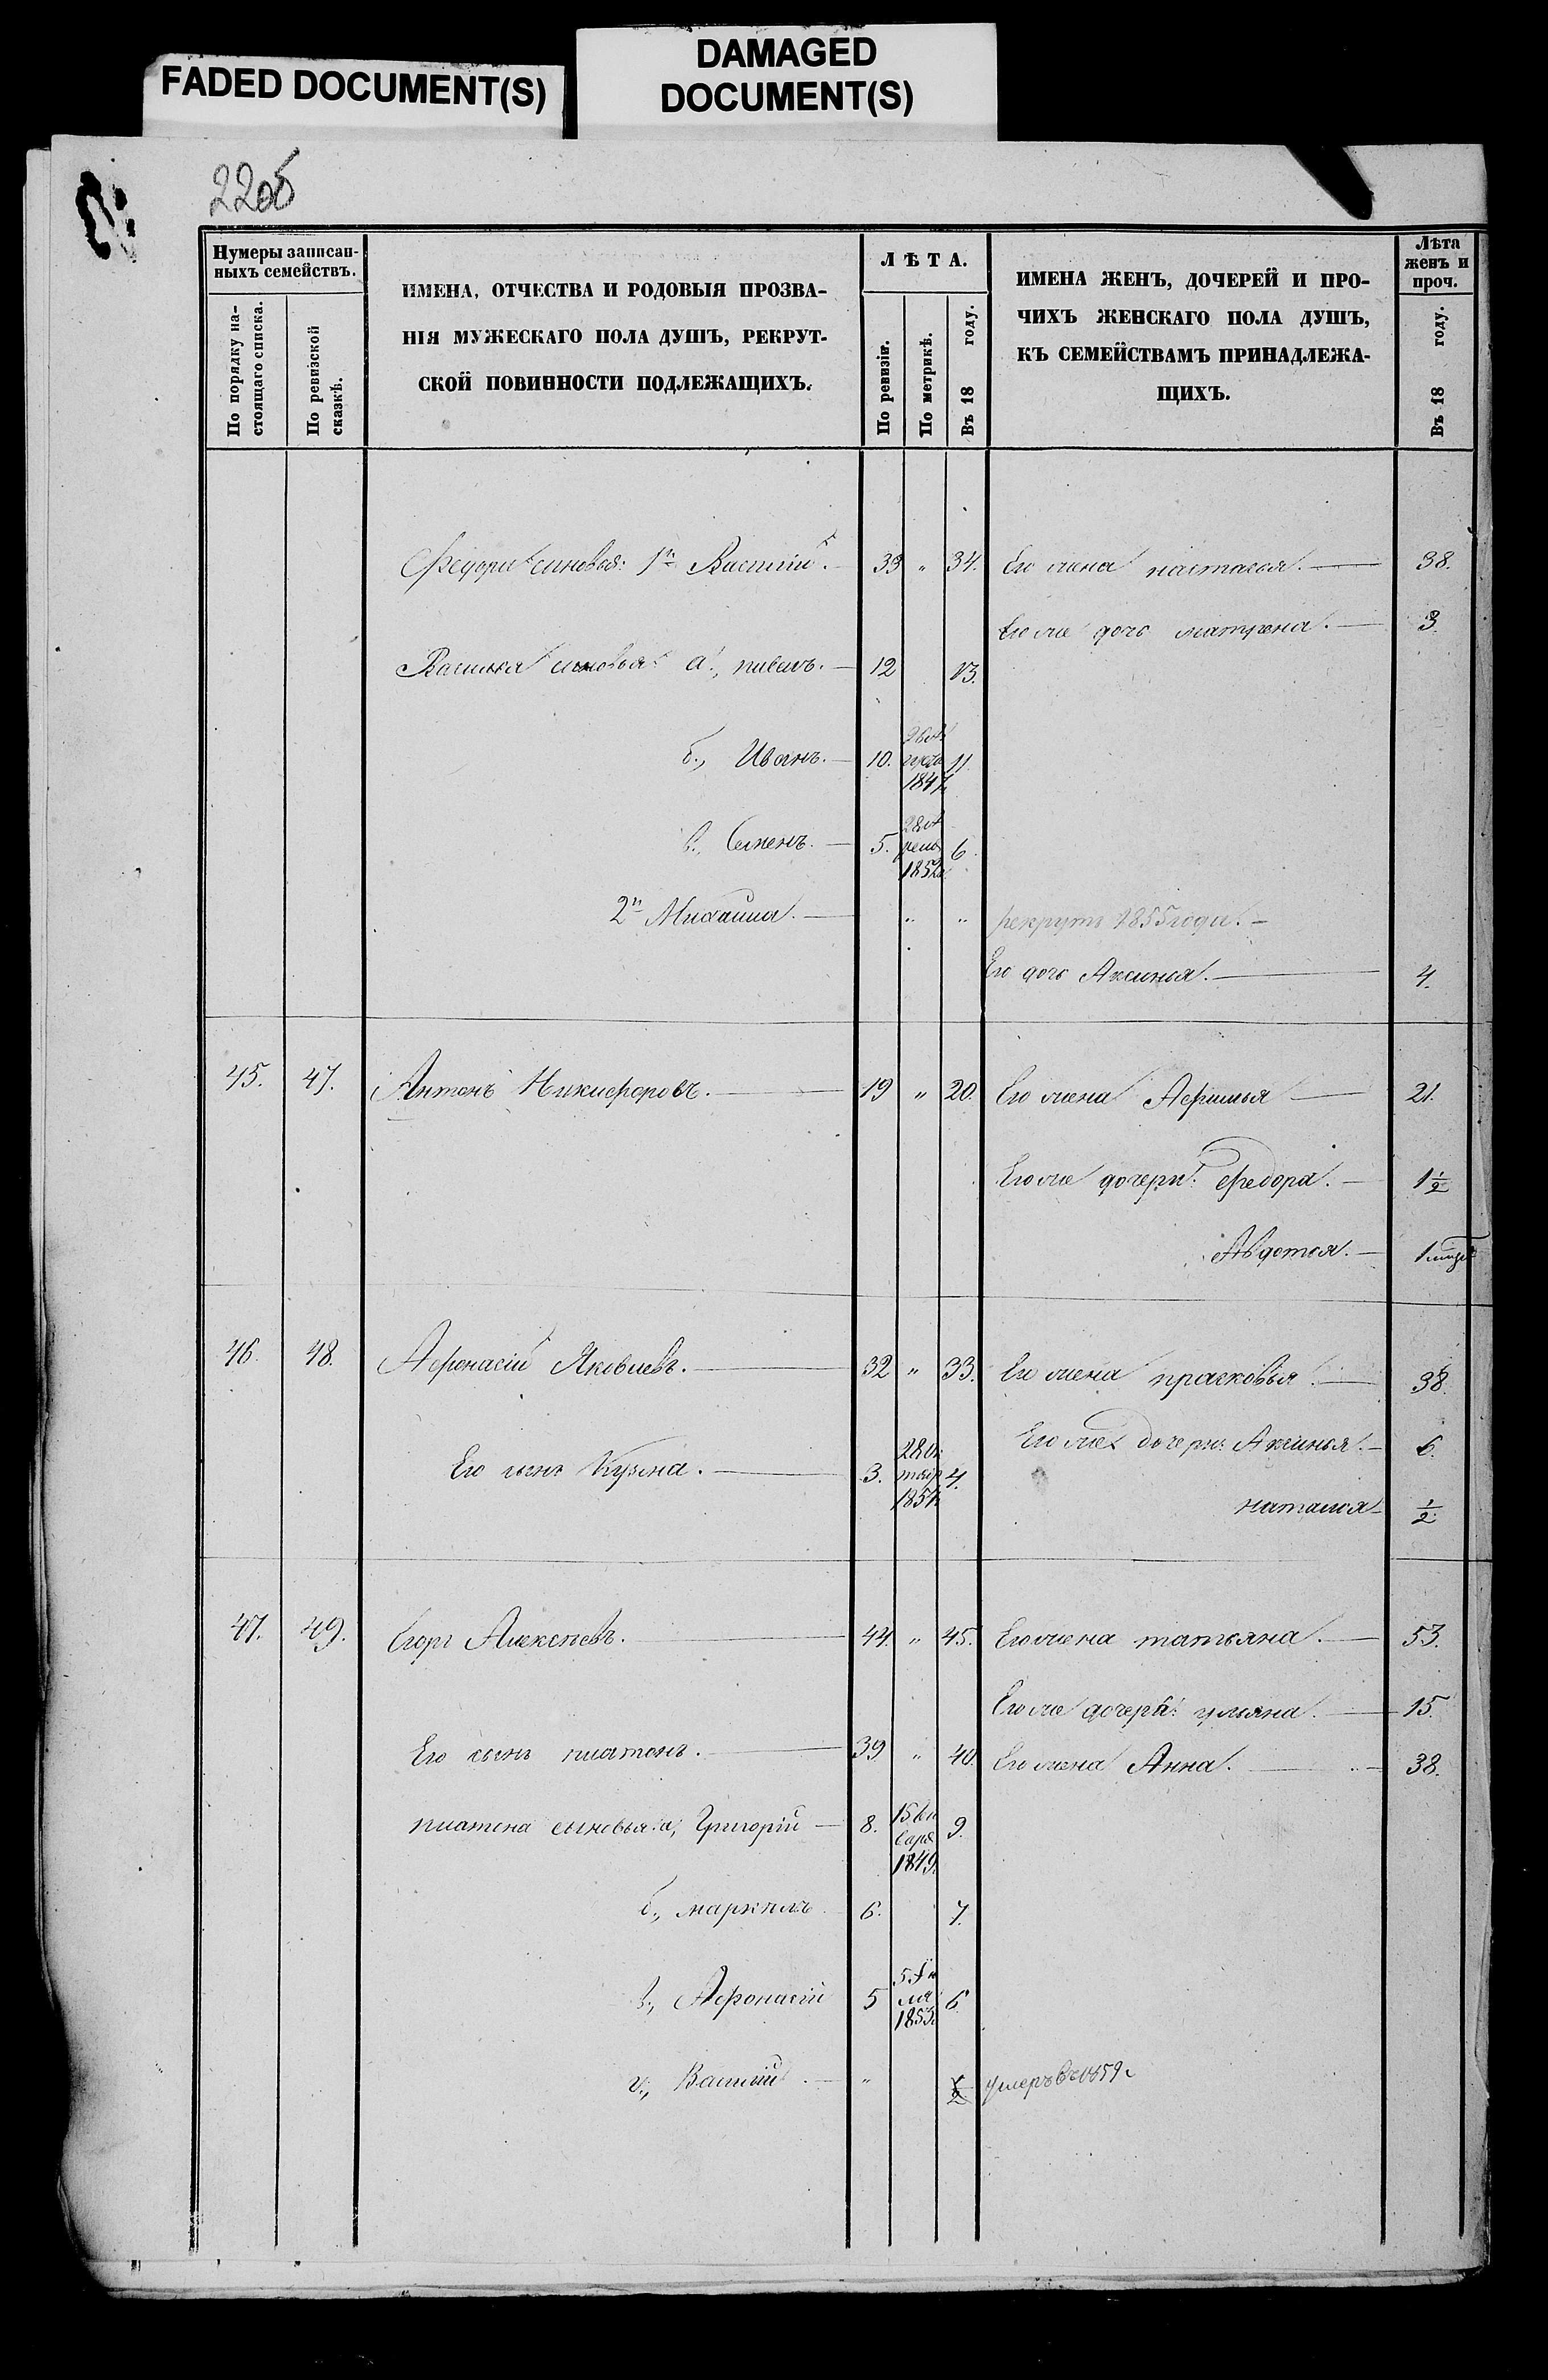 FADED DOCUMENT(S)
DAMAGED
DOCUMENT(S)
22об
Нумеры записан-
ныхъ семействъ.
По порядку на-
стоящаго списка.
По ревизской
сказкѣ.
ИМЕНА, ОТЧЕСТВА И РОДОВЫЯ ПРОЗВА-
НІЯ МУЖЕСКАГО ПОЛА ДУШЪ, РЕКРУТ-
СКОЙ ПОВИННОСТИ ПОДЛЕЖАЩИХЪ.
ЛѢТА.
По ревизіи.
По метрикѣ.
Въ 18 году.
ИМЕНА ЖЕНЪ, ДОЧЕРЕЙ И ПРО-
ЧИХЪ ЖЕНСКАГО ПОЛА ДУШЪ,
КЪ СЕМЕЙСТВАМЪ ПРИНАДЛЕЖА-
ЩИХЪ.
Лѣта
женъ и
проч.
Въ 18 году.
Федора сыновья: 1й Василій. 33 " 34. Его жена настасья. 38.
Его же дочь матрена. 3.
Василья сыновья а., павелъ. 12 13.
б., Иванъ. 10. 1847 11.
в., Семенъ. 5. 1852 6.
2й Михаила. " " рекрутъ 1855 года.
Его дочь Аксинья. 4.
45. 47. Антонъ Никифоровъ. 19 " 20. Его жена Афимья 21.
Его же дочери: Федора. 1 1/2
Авдотья. 1
46. 48. Афонасій Яковлевъ. 32 " 33. Его жена прасковья. 38.
Его же дочери: Аксинья. 6.
Его сынъ Кузма. 3. 4.
наталья 1/2
47. 49. Егоръ Алексѣевъ. 44. " 45. Его жена татьяна. 53.
Его же дочери: ульяна. 15.
Его сынъ платонъ. 39 " 40. Его жена Анна. 38.
платона сыновья: а, Григорій 8. 15 1849. 9.
б., маркелъ 6. 7.
в., Афонасій 5 6.
г., Василій. " умеръ въ 1859 г